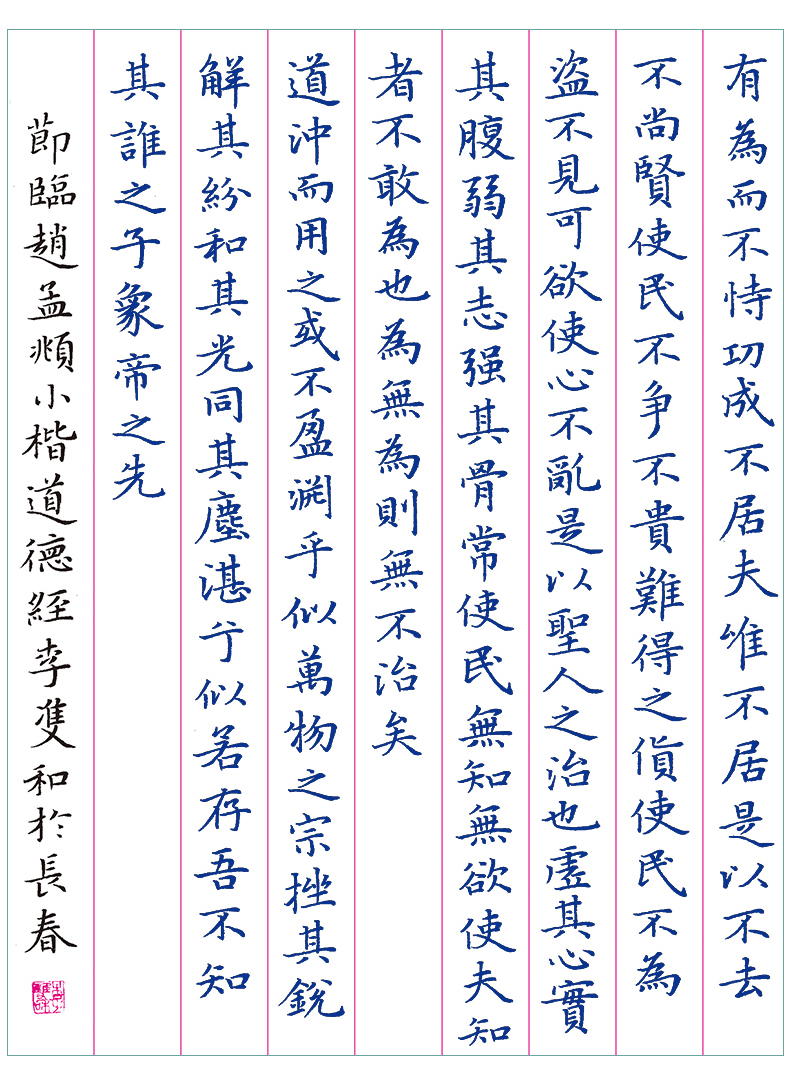 有為而不恃功成不居夫惟不居是以不去
不尚賢使民不爭不貴難得之貨使民不為
盜不見可欲使心不亂是以聖人之治也虛其心實
其腹弱其志强其骨常使民無知無欲使夫知
者不敢為也為無為則無不治矣
道沖而用之或不盈淵乎似萬物之宗挫其銳
解其紛和其光同其塵湛兮似若存吾不知
其誰之子象帝之先
節臨趙孟頫小楷道德經李雙和於長春